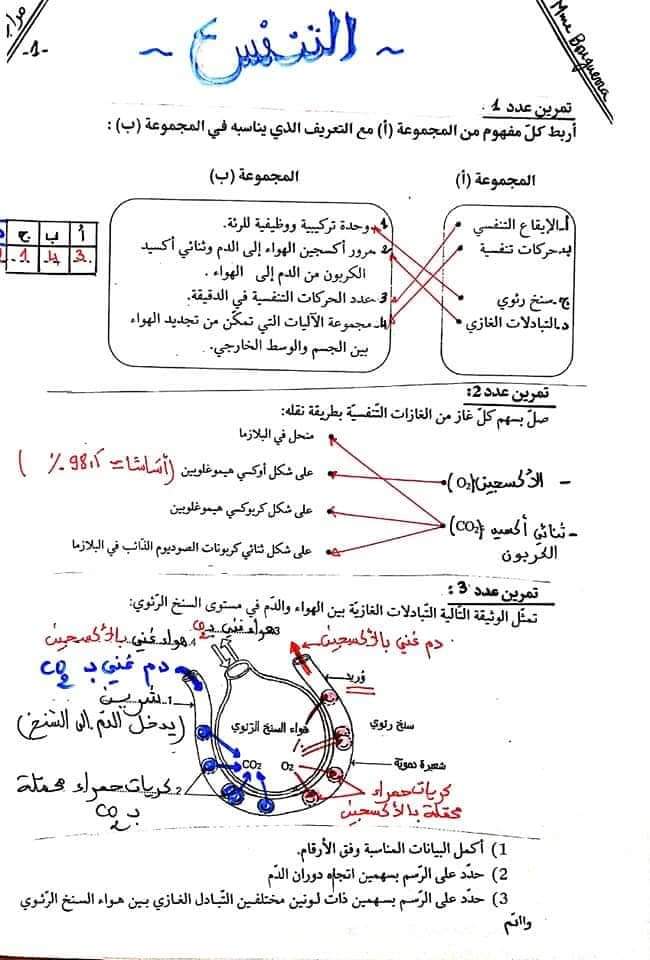 مراجعة
-1-
~ التنفس ~
Mme Bouguerra
تمرين عدد 1.
أربط كلّ مفهوم من المجموعة (أ) مع التعريف الذي يناسبه في المجموعة (ب) :
المجموعة (أ)
المجموعة (ب)
أ- الإيقاع التنفسي
ب- حركات تنفسية
ج- سنخ رئوي
د- التبادلات الغازي
1- وحدة تركيبية ووظيفية للرئة.
2- مرور أكسجين الهواء إلى الدم وثنائي أكسيد
الكربون من الدم إلى الهواء .
3- عدد الحركات التنفسية في الدقيقة.
4- مجموعة الآليات التي تمكّن من تجديد الهواء
بين الجسم والوسط الخارجي.
أ ب ج
3 4 1
تمرين عدد 2:
صلّ بسهم كلّ غاز من الغازات التّنفسيّة بطريقة نقله:
منحل في البلازما
على شكل أوكسي هيموغلوبين (أساسا ≈ 98٪)
على شكل كربوكسي هيموغلوبين
على شكل ثنائي كربونات الصوديوم الذّائب في البلازما
- الأكسجين (O2)
- ثنائي أكسيد (CO2)
الكربون
تمرين عدد 3 :
تمثّل الوثيقة التّالية التّبادلات الغازيّة بين الهواء والدّم في مستوى السنخ الرّئوي:
3 هواء غني بـ CO2
4 هواء غني بالأكسجين
دم غني بالأكسجين
دم غني بـ CO2
وريد
1 شريين
(يدخل الدم إلى السنخ)
هواء السنخ الرّئوي
سنخ رئوي
CO2 O2
شعيرة دموية
2 كريات حمراء محمّلة
بـ CO2
كريات حمراء
محمّلة بالأكسجين
1) أكمل البيانات المناسبة وفق الأرقام.
2) حدّد على الرّسم بسهمين اتجاه دوران الدّم
3) حدّد على الرّسم بسهمين ذات لونين مختلفين التّبادل الغازي بين هواء السنخ الرّئوي
والدّم